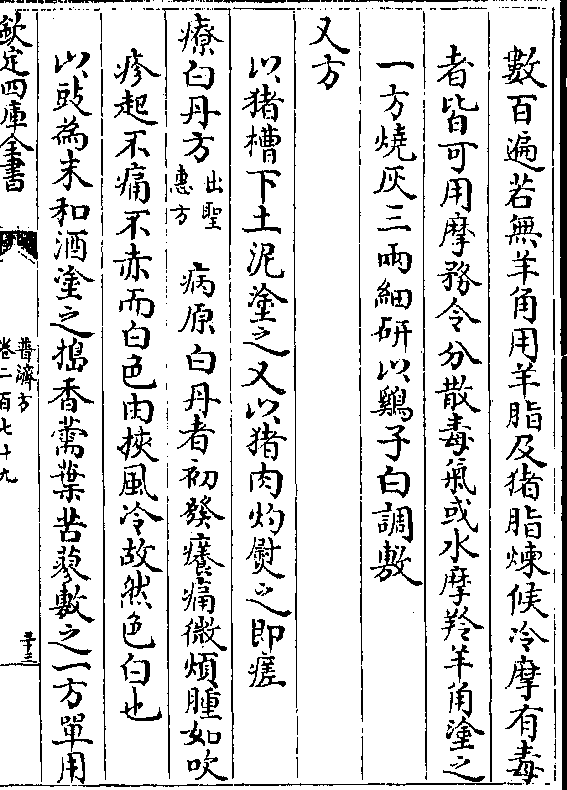 數百遍若無羊角用羊脂及猪脂煉候冷摩有毒
者皆可用摩務令分散毒氣或水摩羚羊角塗之
一方燒灰三兩細研以鷄子白調敷
又方
以猪槽下土泥塗之又以猪肉灼熨之即瘥
療白丹方出聖惠方 病原白丹者初發癢痛微煩腫如吹
疹起不痛不赤而白色由挾風冷故然色白也
以豉為末和酒塗之搗香薷葉苦蓼敷之一方單用
欽定四庫全書
普濟方
卷二百七十九